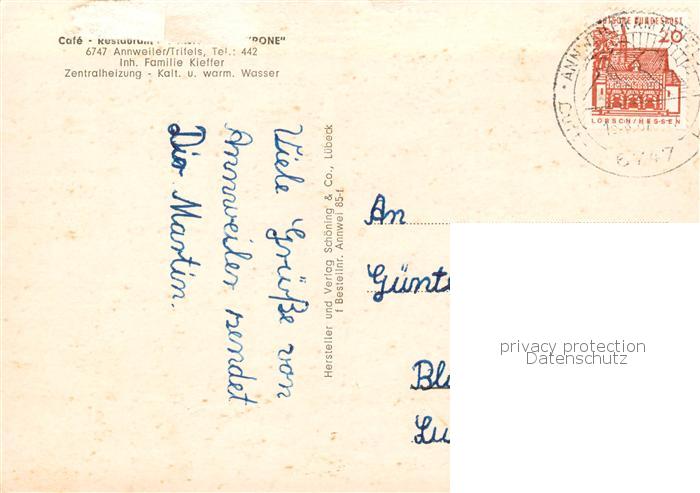 Café - Restaurant - "KRONE"
6747 Annweiler/Trifels, Tel.: 442
Inh. Familie Kieffer
Zentralheizung - Kalt. u. warm. Wasser
Viele Grüße von
Annweiler sendet
Dir Martin.
Hersteller und Verlag Schöning & Co., Lübeck
f Bestellnr. Annwei 85-f
DEUTSCHE BUNDESPOST
20
LORSCH/HESSEN
ANNWEILER AM
6747
An
Günte
Bl
Lu
privacy protection
Datenschutz